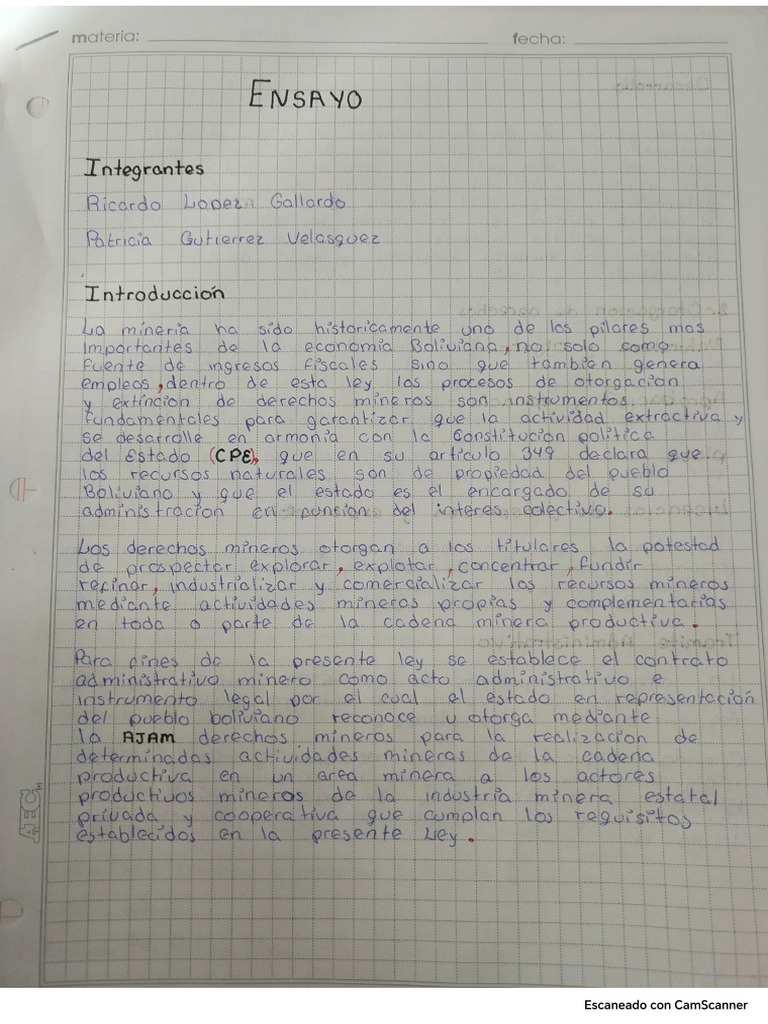 materia:
fecha:
ENSAYO
Integrantes
Ricardo Lopez Gallardo
Patricia Gutierrez Velasquez
Introduccion
La mineria ha sido historicamente uno de los pilares mas
importantes de la economia Boliviana, no solo como
fuente de ingresos fiscales sino que tambien genera
empleos, dentro de esta ley los procesos de otorgacion
y extincion de derechos mineros son instrumentos
fundamentales para garantizar que la actividad extractiva y
se desarrolle en armonia con la Constitucion politica
del Estado (CPE), que en su articulo 349 declara que
los recursos naturales son de propiedad del pueblo
Boliviano y que el estado es el encargado de su
administracion en funcion del interes colectivo.
Los derechos mineros otorgan a los titulares la potestad
de prospectar explorar, explotar, concentrar, fundir
refinar, industrializar y comercializar los recursos mineros
mediante actividades mineras propias y complementarias
en toda o parte de la cadena minera productiva.
Para fines de la presente ley se establece el contrato
administrativo minero como acto administrativo e
instrumento legal por el cual el estado en representación
del pueblo boliviano reconoce u otorga mediante
la AJAM derechos mineros para la realizacion de
determinadas actividades mineras de la cadena
productiva en un area minera a los actores
productivos mineros de la industria minera estatal
privada y cooperativa que cumplan los requisitos
establecidos en la presente Ley.
AEC
Escaneado con CamScanner